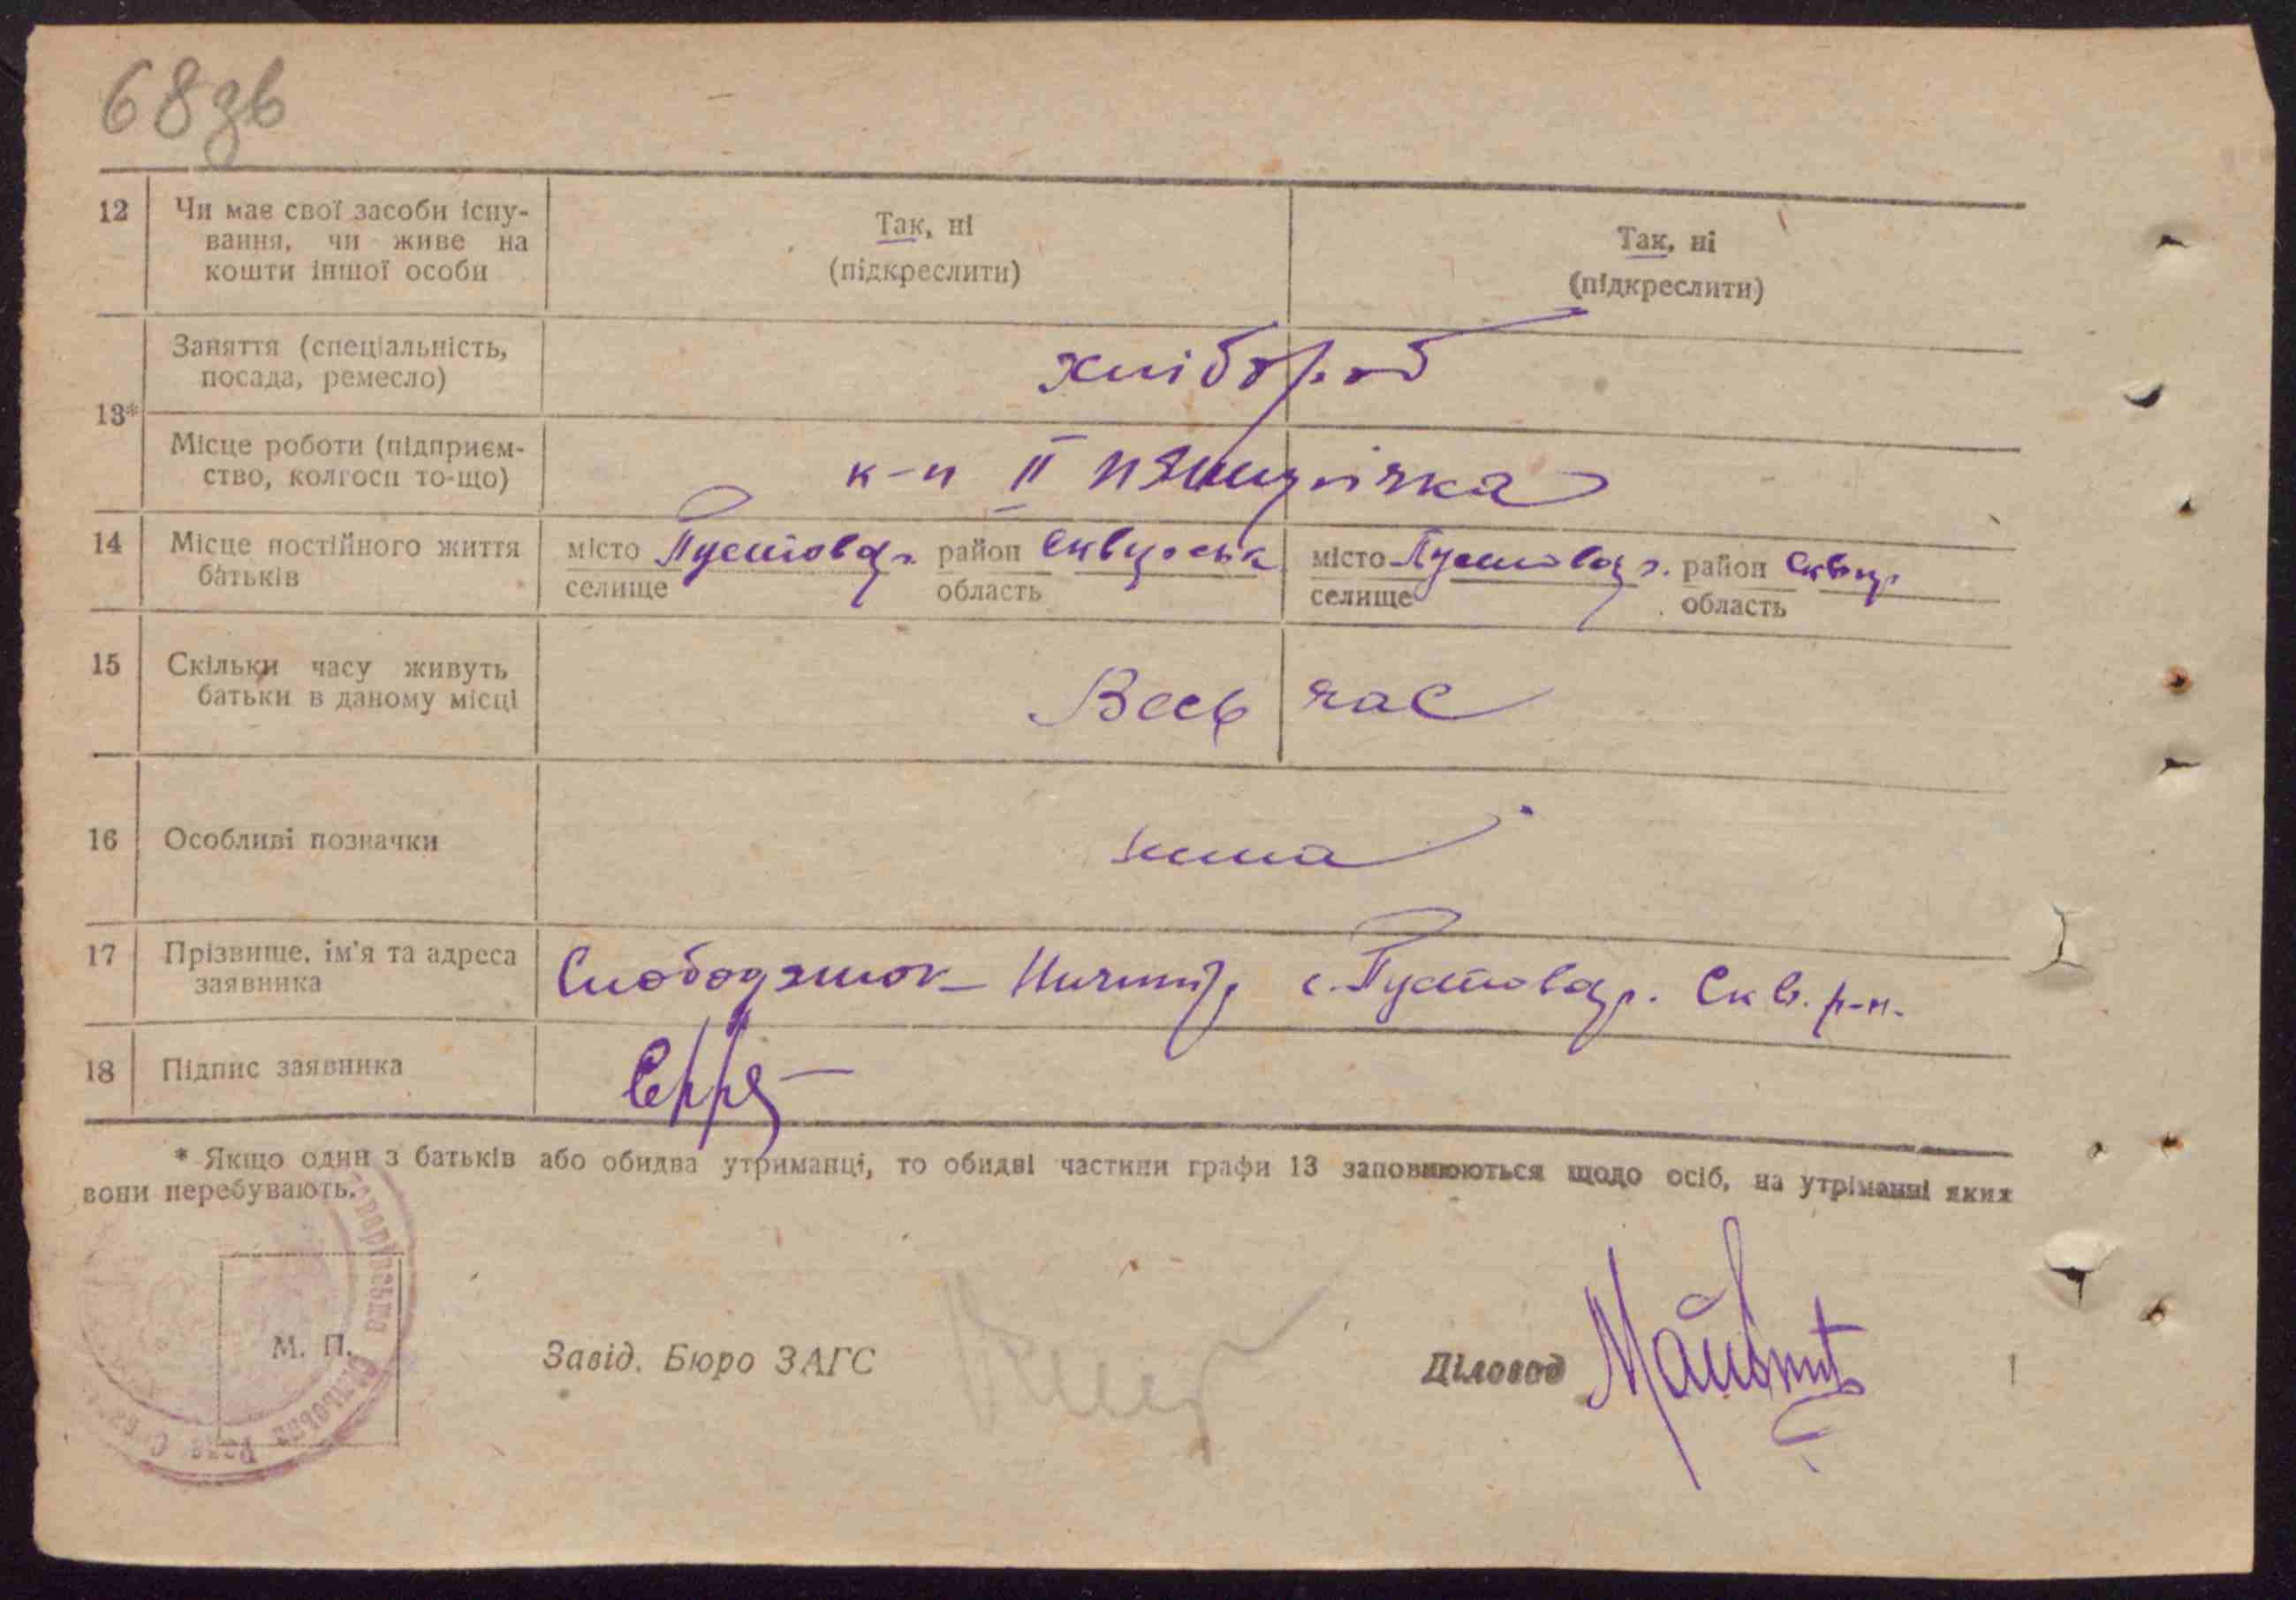 68зв
12 Чи має свої засоби існу-
вання, чи живе на
кошти іншої особи
Так, ні
(підкреслити)
Так, ні
(підкреслити)
13*
Заняття (спеціальність,
посада, ремесло)
хлібороб
Місце роботи (підприєм-
ство, колгосп то-що)
к-п ІІ пятирічка
14 Місце постійного життя
батьків
місто Пустовар. район Сквирськ
селище область
місто Пустовар. район Сквир
селище область
15 Скільки часу живуть
батьки в даному місці
Весь час
16 Особливі позначки
нима
17 Прізвище, ім'я та адреса
заявника
Слободянюк Ничипір с. Пустовар. Скв. р-н.
18 Підпис заявника
* Якщо один з батьків або обидва утриманці, то обидві частини графи 13 заповнюються щодо осіб, на утріманні яких
вони перебувають.
М. П.
Завід. Бюро ЗАГС
Діловод
Сільська Рада